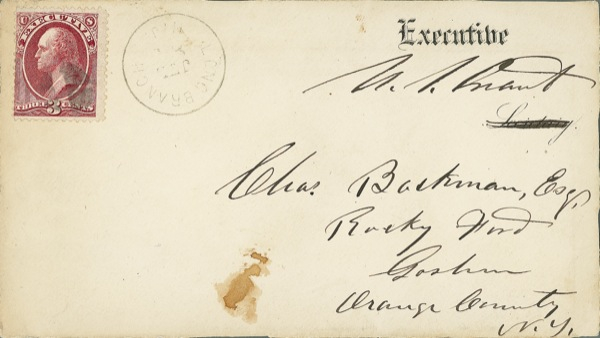 EXECUTIVE
THREE 3 CENTS
LONG BRANCH
SEP
Executive
U. S. Grant
Chas. Backman, Esq,
Rocky Ford
Goshen
Orange County
N. Y.